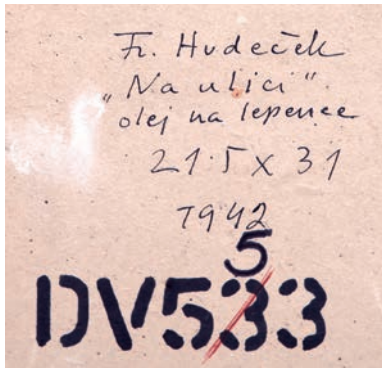 Fr. Hudeček
„Na ulici“
olej na lepence
21.5 x 31
1942
5
DV533